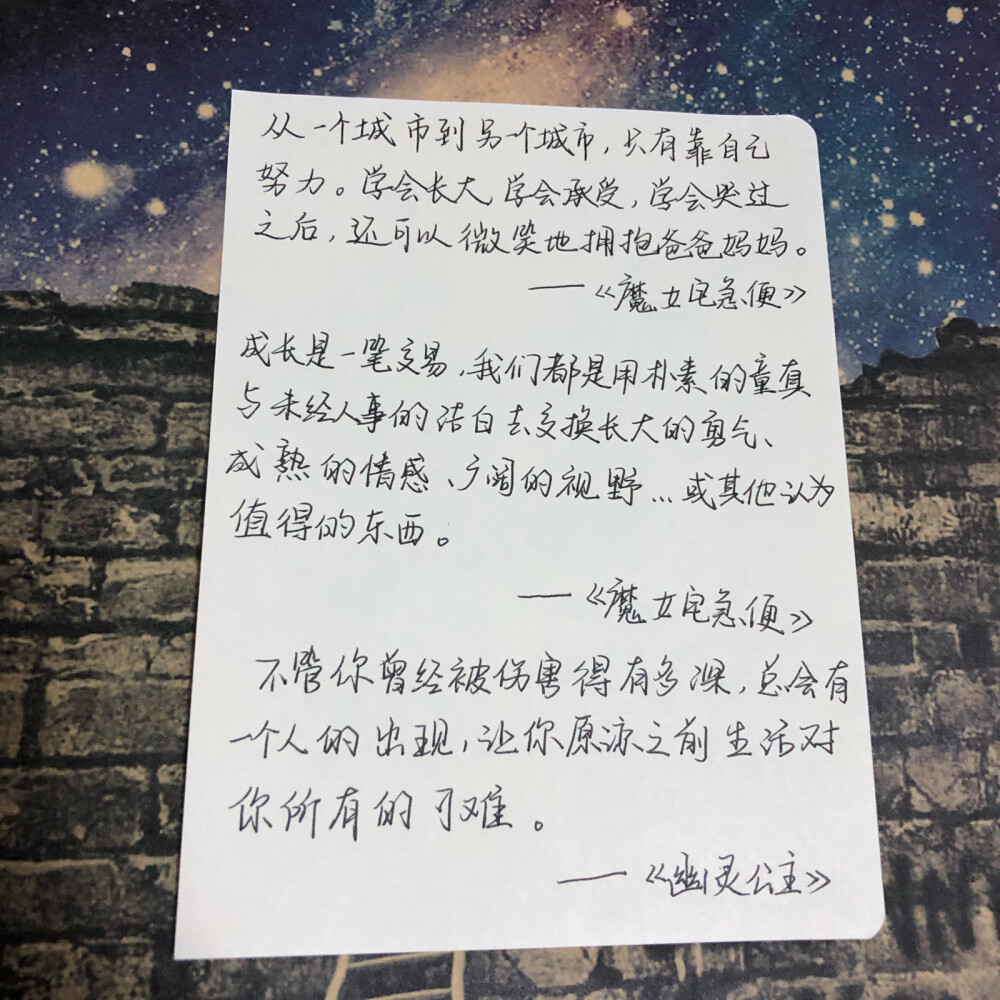 从一个城市到另一个城市，只有靠自己
努力。学会长大 学会承受，学会哭过
之后，还可以微笑地拥抱爸爸妈妈。
——《魔女宅急便》
成长是一笔交易，我们都是用朴素的童真
与未经人事的洁白去交换长大的勇气、
成熟的情感、广阔的视野...或其他认为
值得的东西。
——《魔女宅急便》
不管你曾经被伤害得有多深，总会有
一个人的出现，让你原谅之前生活对
你所有的刁难。
——《幽灵公主》